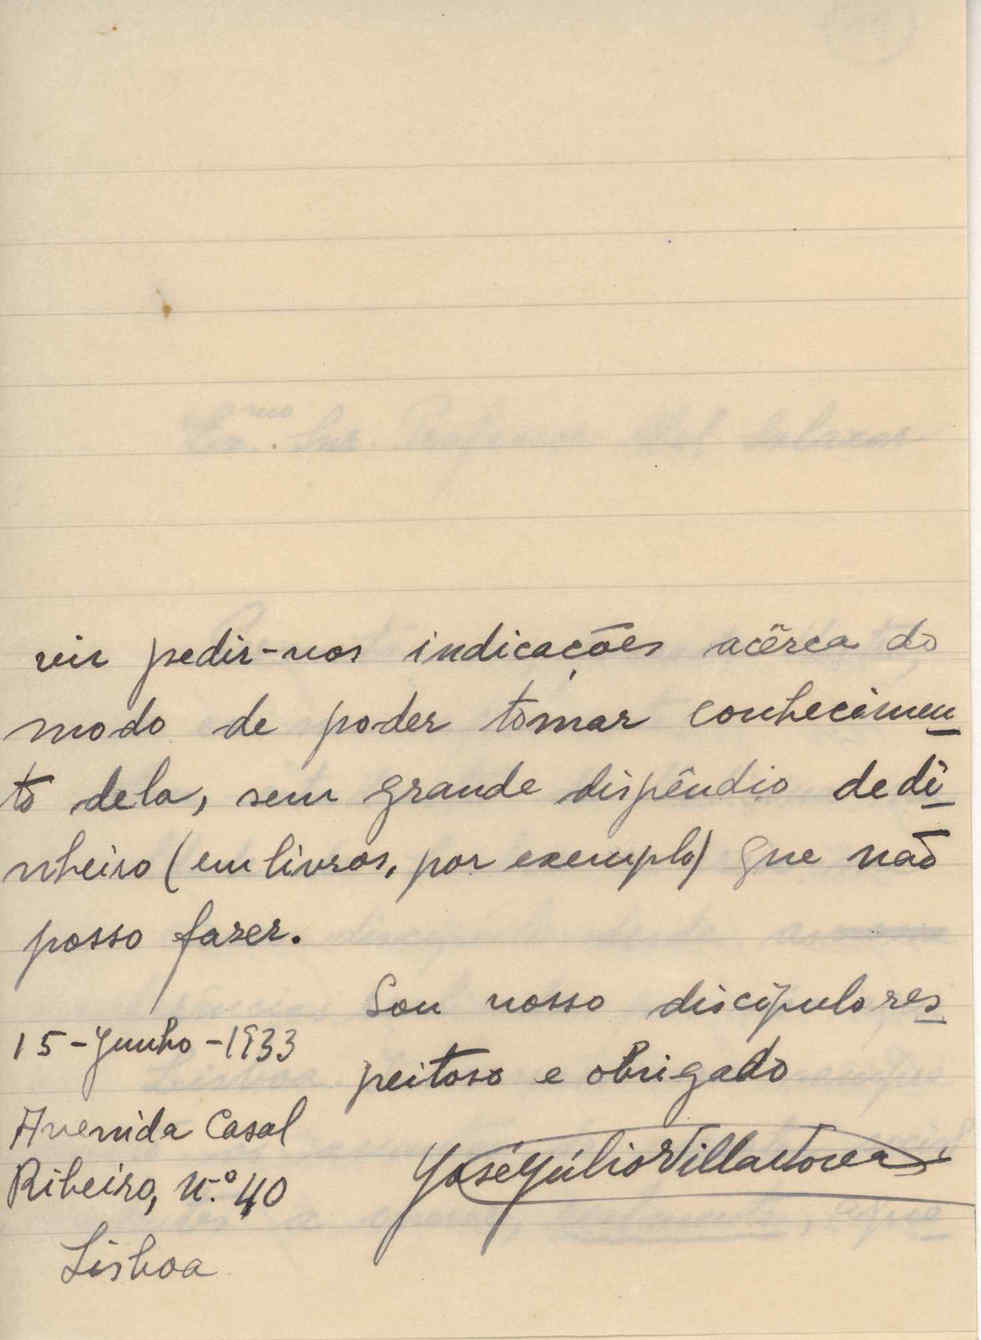 vir pedir-vos indicações acêrca do
modo de poder tomar conhecimen-
to dela, sem grande dispêndio de di-
nheiro (em livros, por exemplo) que não
posso fazer.
Sou vosso discípulo res-
peitoso e obrigado
15-Junho-1933
Avenida Casal
Ribeiro, n.º 40
Lisboa
José Júlio